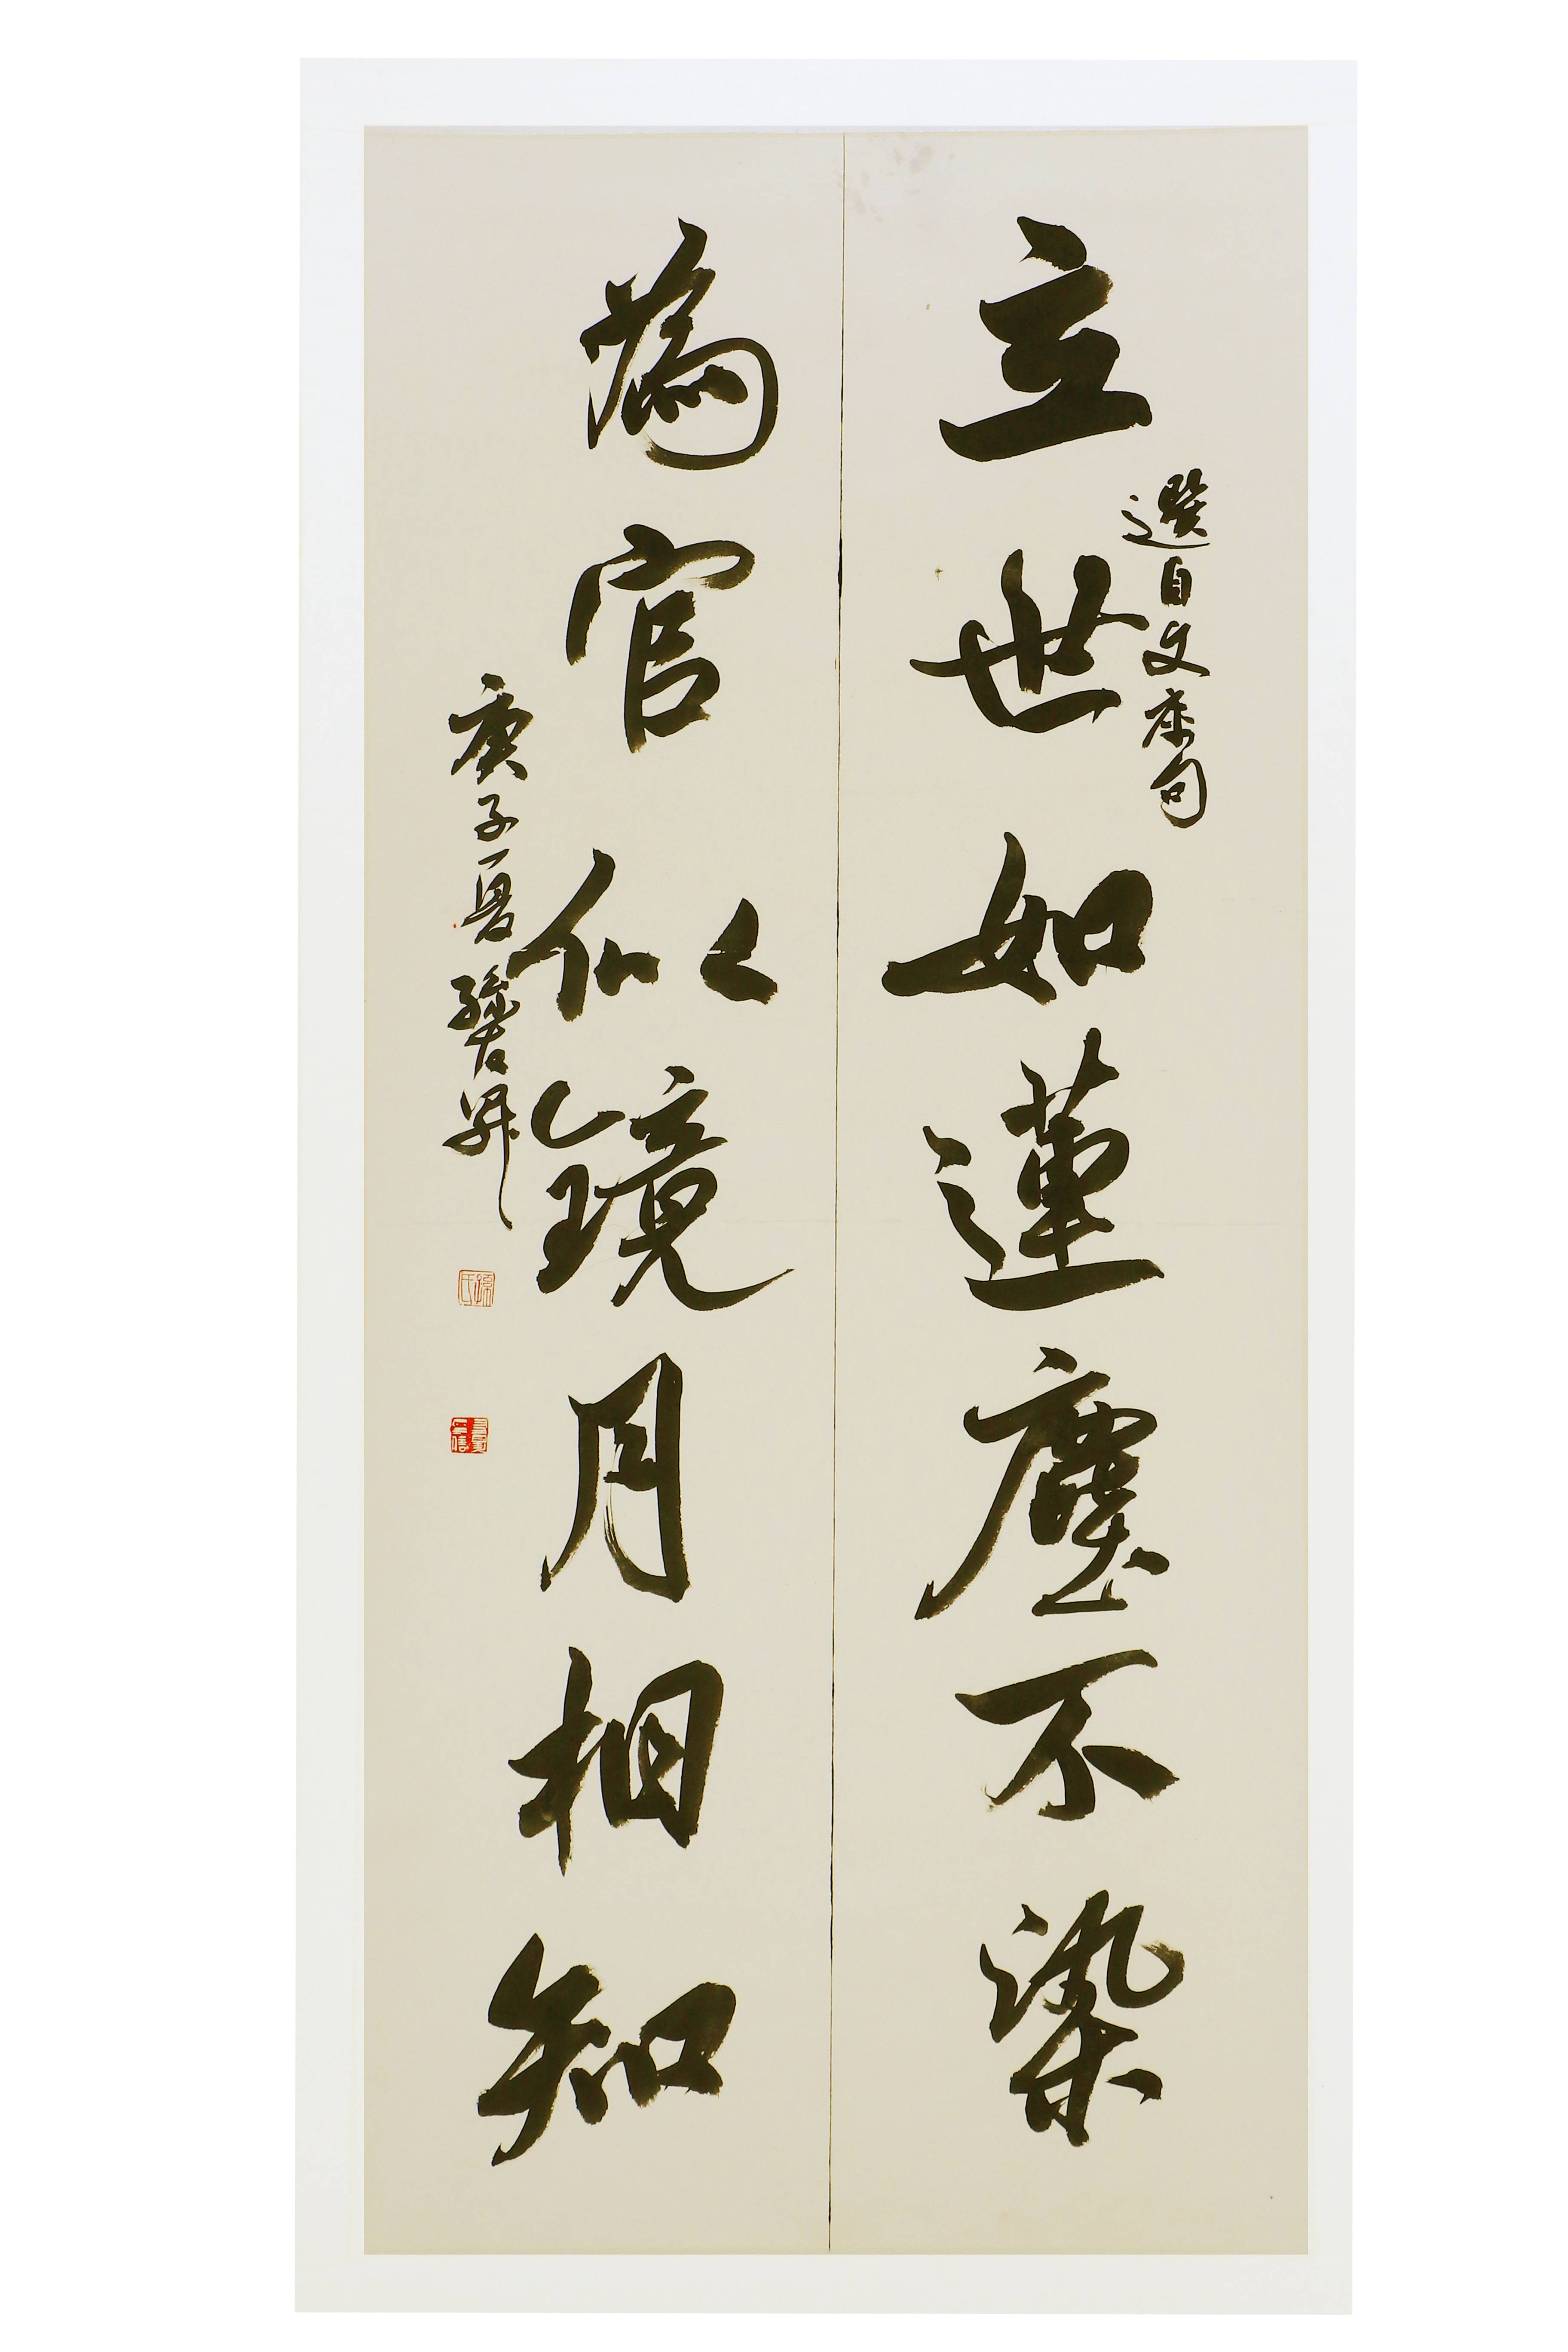 立世如蓮塵不染
選自文库句
為官似鏡月相知
庚子夏
孫氏